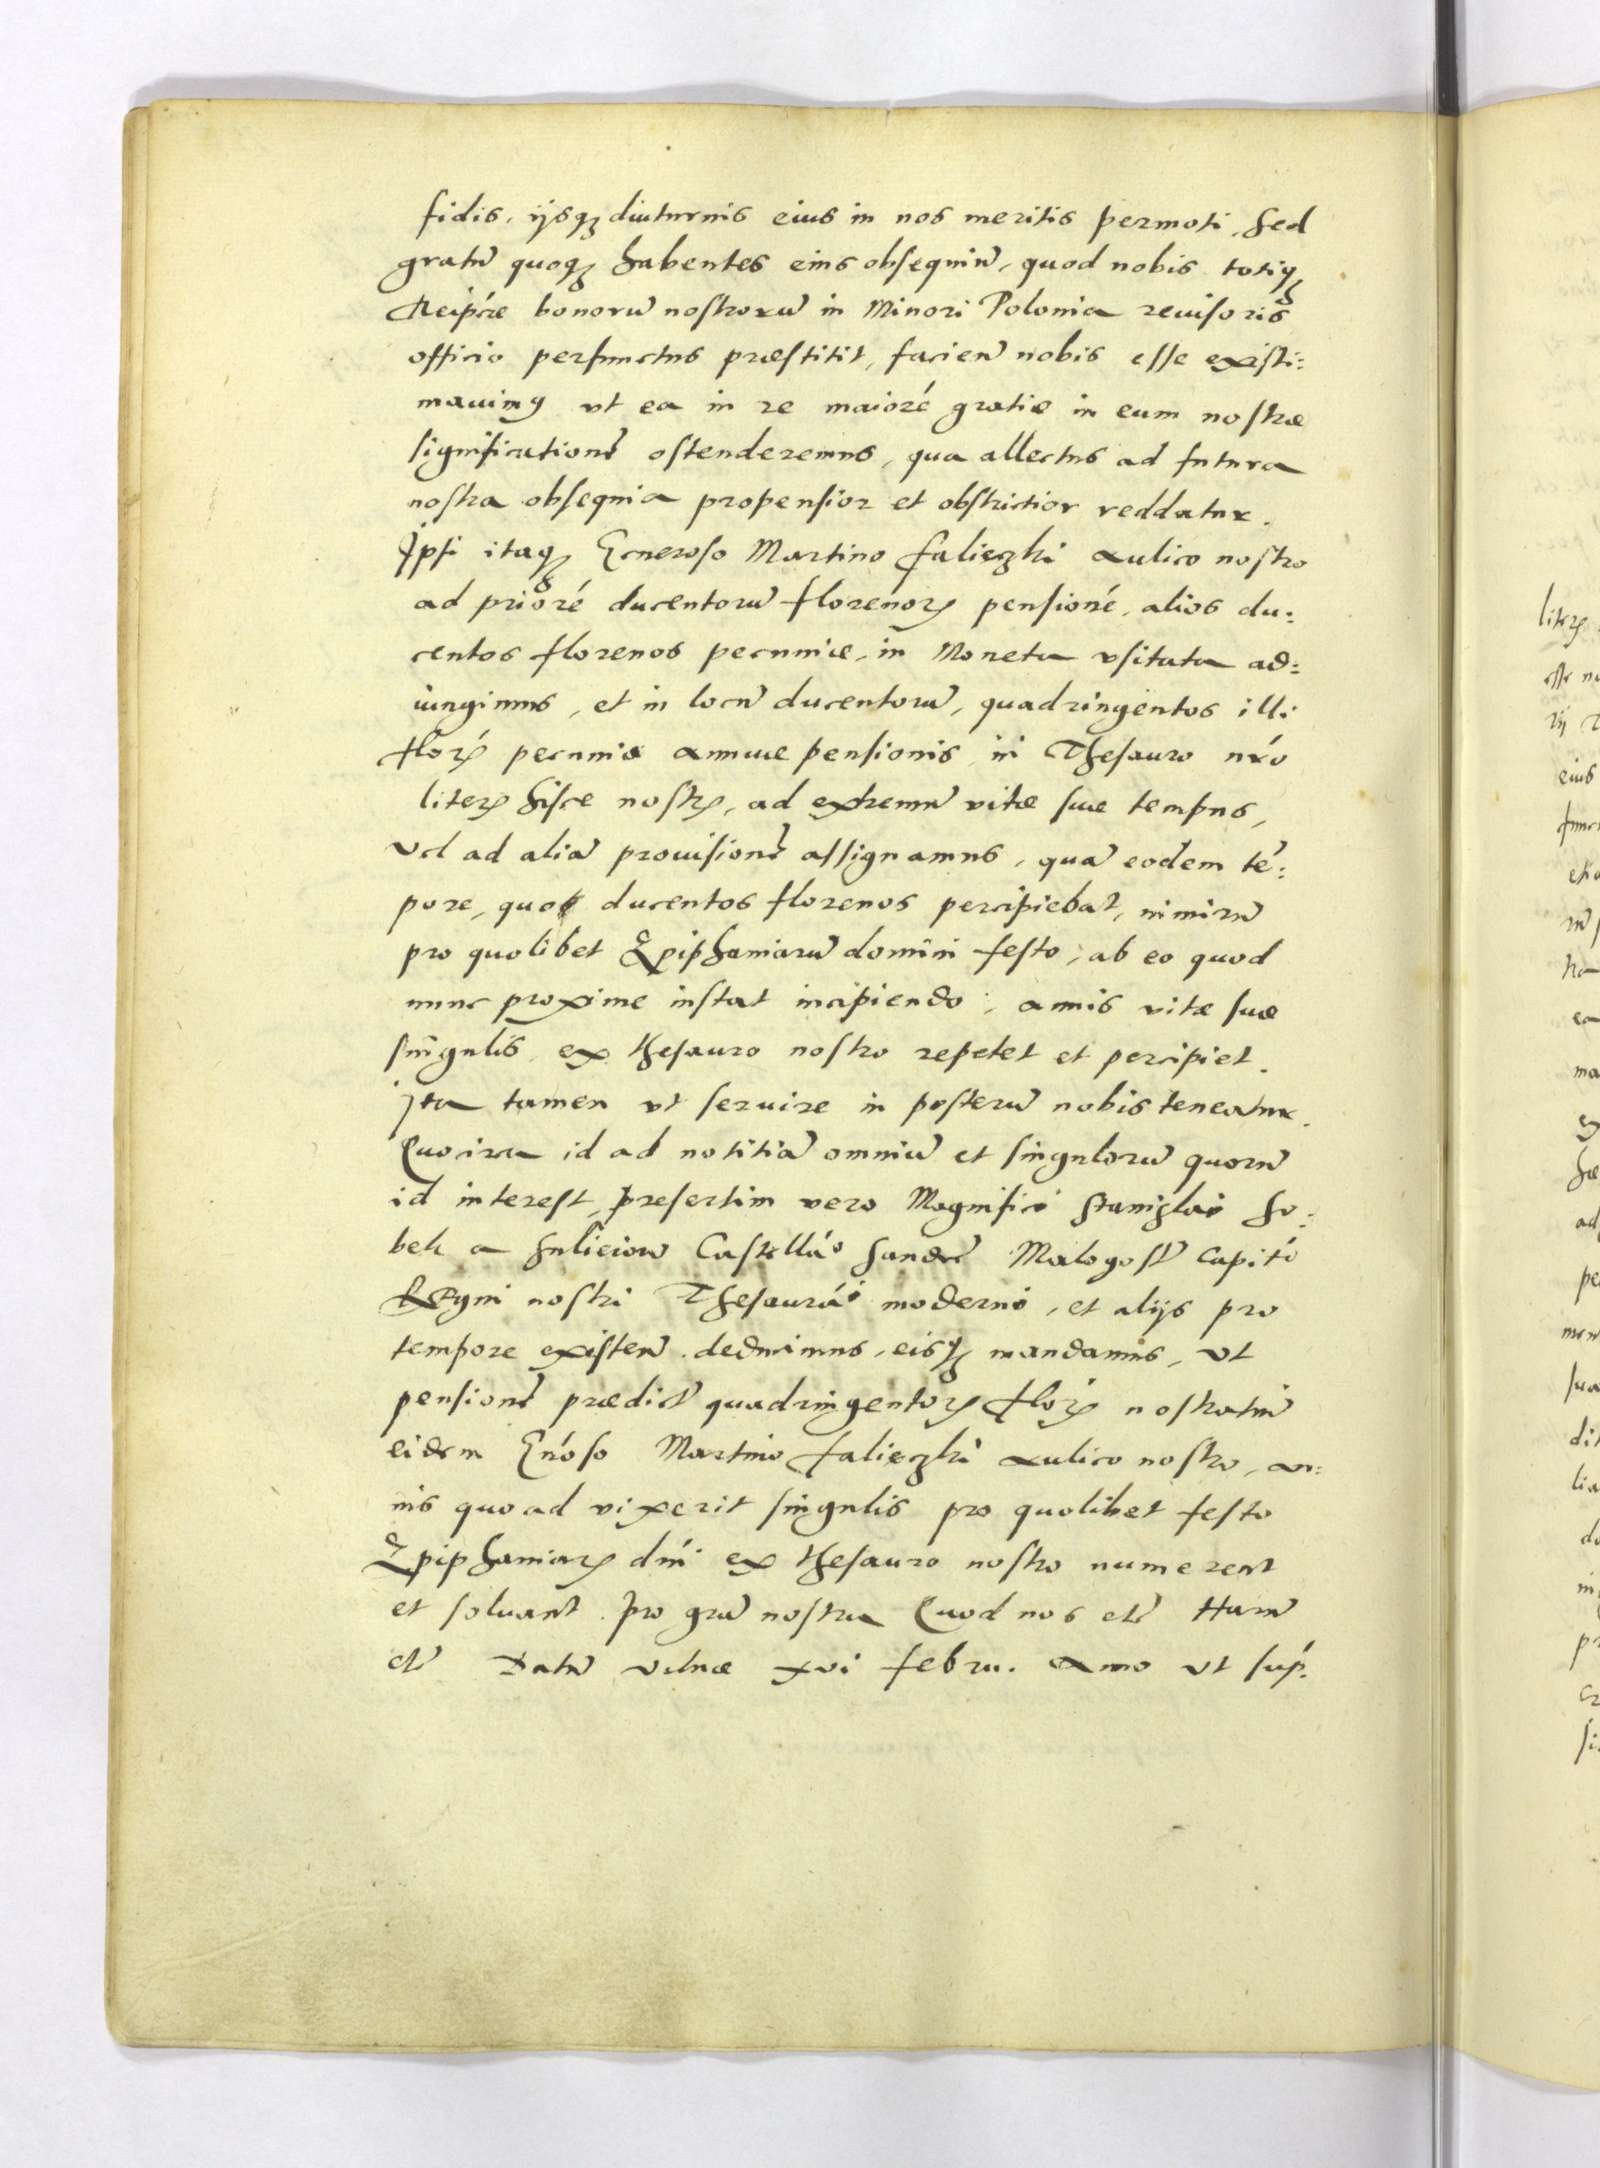 fidis, ijsqȝ diuturnis eius in nos meritis permoti, sed
gratū quoqȝ habentes eius obsequiū, quod nobis totiqȝ
Reipcæ bonorū nostrorū in Minori Polonia reuisoris
officio perfunctus præstitit, facien̄ nobis esse existi:
mauimꝰ vt ea in re maiorē gratiæ in eum nostræ
significationē ostenderemus, qua allectus ad futura
nostra obsequia propensior et obstrictior reddatur.
Ipsi itaqȝ Generoso Martino falieczki Aulico nostro
ad priorē ducentorū florenorꝝ pensionē, alios du:
centos florenos pecuniæ, in Moneta vsitata ad:
iungimus, et in locū ducentorū, quadringentos illi
florꝝ pecuniæ annuæ pensionis in Thesauro nr̄o
literꝝ hisce nostrꝝ, ad extremū vitæ suæ tempus,
vel ad aliā prouisionē assignamus, quā eodem tē:
pore, quo ducentos florenos percipiebat, nimirū
pro quolibet Epiphaniarū domini festo, ab eo quod
nunc proxime instat incipiendo, annis vitæ suæ
singulis ex thesauro nostro repetet et percipiet.
Ita tamen vt seruire in posterū nobis teneatur.
Quocirca id ad notitiā omniū et singulorū quorū
id interest, presertim vero Magnifici Stanislai So:
bek a Sulieiow Castellāo Sandc̄ Malogost̄ Capitō
Regni nostri Thesaurāi moderni, et alijs pro
tempore existen̄ deducimus, eisqȝ mandamus, vt
pensionē prædict̄ quadringentorꝝ florꝝ nostratiū
eidem Gn̄oso Martino falieczki Aulico nostro, an:
nis quoad vixerit singulis pro quolibet festo
Epiphaniarꝝ dn̄i ex thesauro nostro numerent
et soluant. pro gra̅ nostra Quod nos etc̄ Harū
etc̄ Datū Vilnæ xvi febru. Anno vt sup̄.